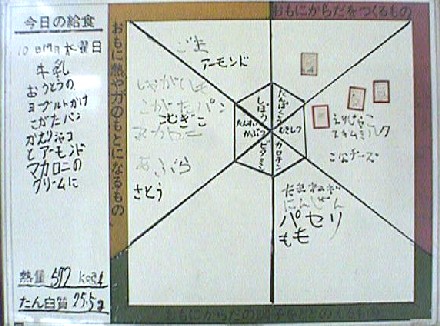 今日の給食
10日19日水曜日
牛乳
おうとうの
ヨーグルトかけ
こがたパン
かえりにぼし
とアーモンド
マカロニの
クリームに
熱量 597 kcal
たん白質 25.5g
おもに熱や力のもとになるもの
おもにからだをつくるもの
おもにからだの調子をととのえるもの
ごま
アーモンド
じゃがいも
こがたパン
こむぎこ
マカロニ
あぶら
さとう
しぼう
たんぱくしつ
たんすいかぶつ
むきしつ
ビタミン
カロテン
スキムミルク
こなチーズ
たまねぎ
にんじん
パセリ
もも